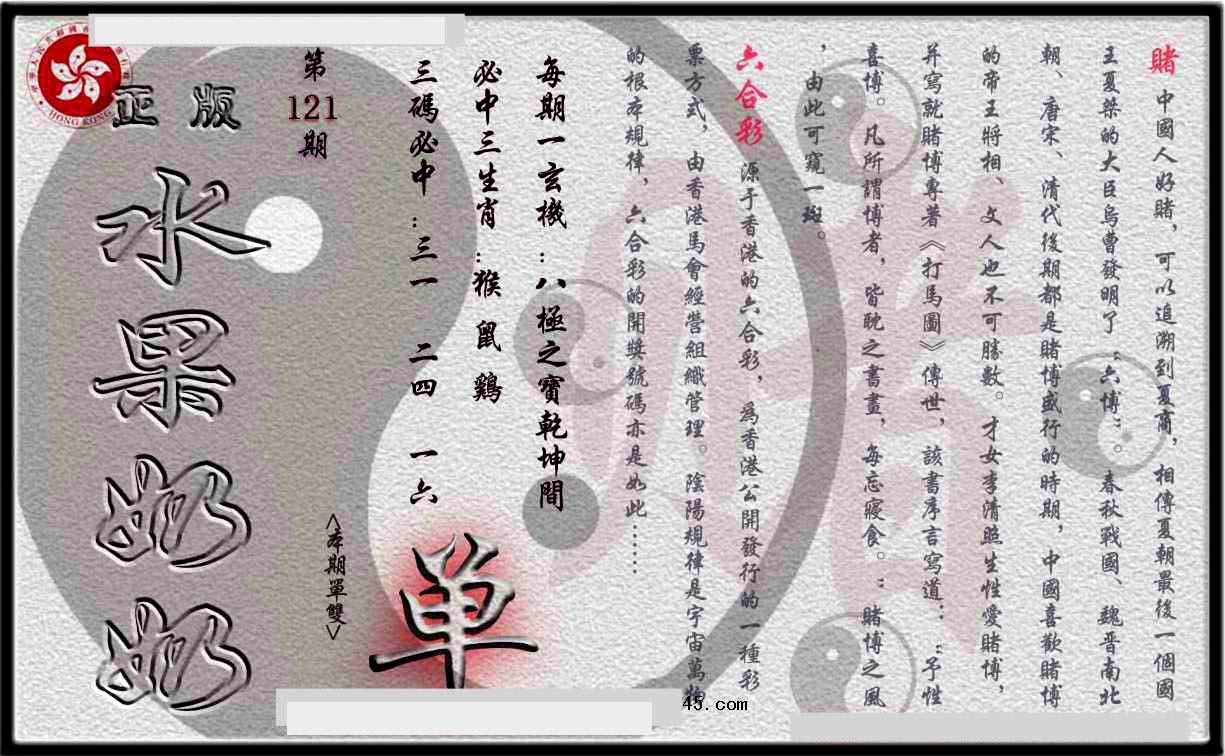 賭 中國人好賭，可以追溯到夏商，相傳夏朝最後一個國
王夏桀的大臣烏曹發明了“六博”。春秋戰國、魏晉南北
朝、唐宋、清代後期都是賭博盛行的時期，中國喜歡賭博
的帝王將相、文人也不可勝數。才女李清照生性愛賭博，
并寫就賭博專著《打馬圖》傳世，該書序言寫道：“予性
喜博。凡所謂博者，皆耽之書畫，每忘寢食。”賭博之風
，由此可窺一斑。
六合彩 源于香港的六合彩，爲香港公開發行的一種彩
票方式，由香港馬會經營組織管理。陰陽規律是宇宙萬物
的根本規律，六合彩的開獎號碼亦是如此……
每期一玄機：八極之寶乾坤間
必中三生肖：猴 鼠 鷄
三碼必中：三一 二四 一六
單
<本期單雙>
第
121
期
正版
水果奶奶
HONG KONG
45.com